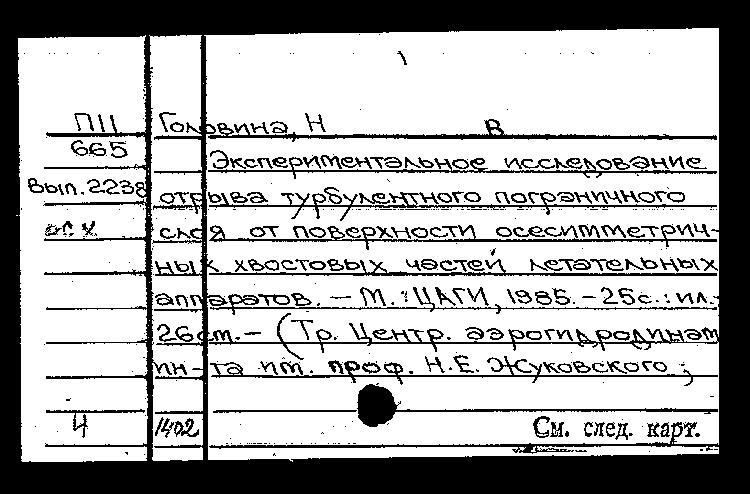 П11 Головина, Н В
665 Экспериментальное исследование
Вып.2238 отрыва турбулентного пограничного
слоя от поверхности осесимметрич-
ных хвостовых частей летательных
аппаратов. – М.: ЦАГИ, 1985. – 25с.: ил.;
26см. – (Тр. Центр. аэрогидродинам
ин-та им. проф. Н.Е. Жуковского ;
4 1402 См. след. карт.